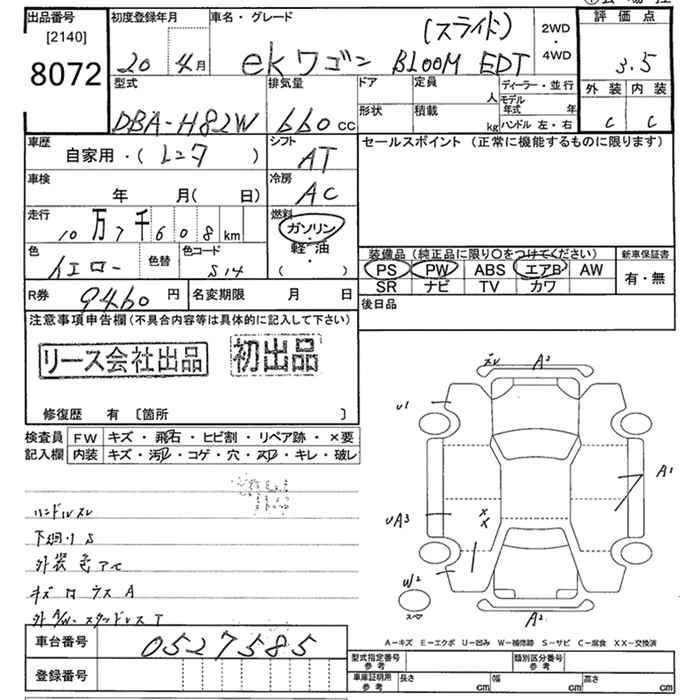 出品番号
[2140]
8072
初度登録年月
20年4月
車名・グレード
(スライド)
ekワゴン BLOOM EDT
2WD
・
4WD
評価点
3.5
外装 内装
C C
型式
DBA-H82W
排気量
660cc
ドア
形状
定員
人
積載
kg
ディーラー・並行
モデル年式 年
ハンドル 左・右
車歴
自家用・(レンタ)
シフト
AT
セールスポイント (正常に機能するものに限ります)
車検
年 月( 日)
冷房
AC
走行
10万7千608km
燃料
ガソリン
軽・油
( )
色
イエロー
色替
色コード
S14
装備品 (純正品に限り○をつけてください)
PS PW ABS エアB AW
SR ナビ TV カワ
新車保証書
有・無
R券
9460円
名変期限 月 日
後日品
注意事項申告欄 (不具合内容等は具体的に記入して下さい)
リース会社出品
初出品
修復歴 有 [箇所 ]
検査員
記入欄
FW キズ・飛石・ヒビ割・リペア跡・×要
内装 キズ・汚レ・コゲ・穴・スレ・キレ・破レ
ハンドルスレ
下廻りS
外装色アセ
キズ ロウス A
外A/W・スタッドレスT
ズレ
A2
U1
A1
UA3
XX
W2
スペア
A2
A-キズ E-エクボ U-凹み W-補修跡 S-サビ C-腐食 XX-交換済
車台番号
0527585
登録番号
型式指定番号
参考
類別区分番号
参考
車庫証明用
参考
長さ cm
幅 cm
高さ cm